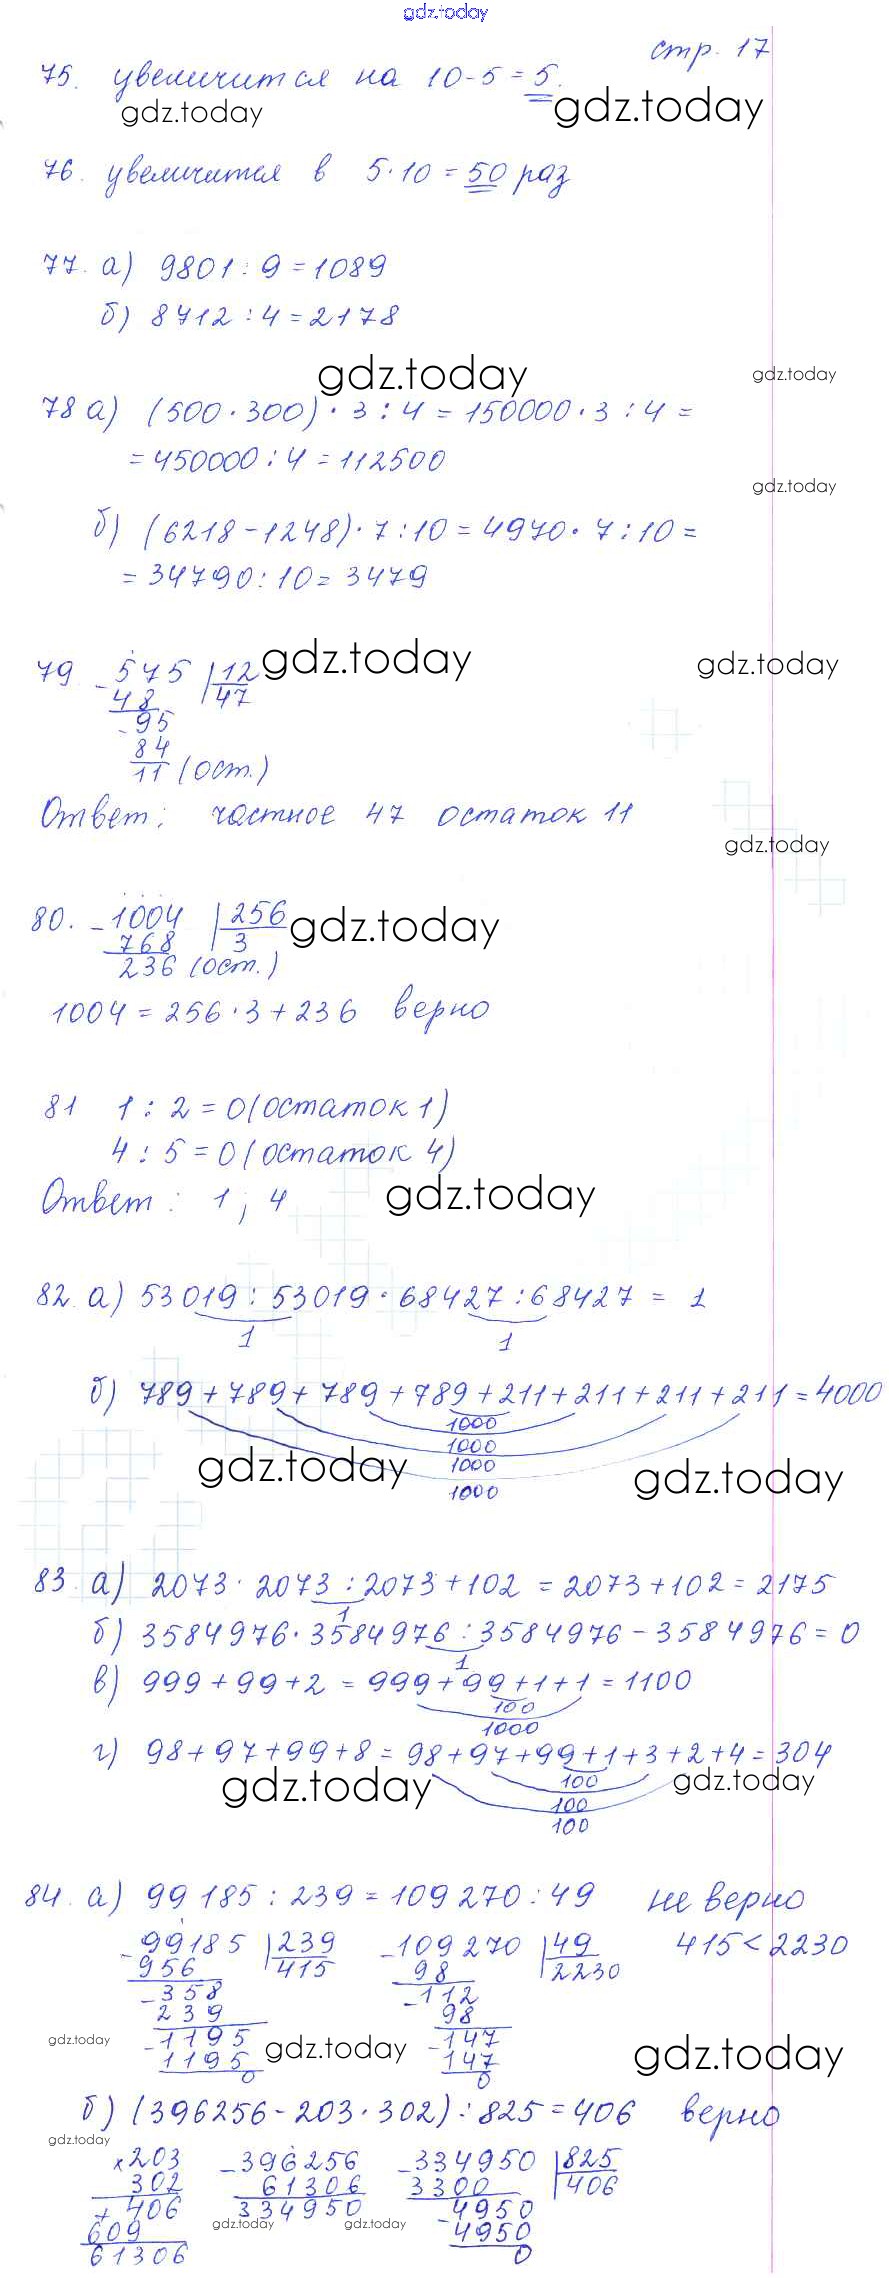 gdz.today
стр. 17
75. увеличится на 10-5=5.
gdz.today gdz.today
76. увеличится в 5·10=50 раз
77. а) 9801:9=1089
б) 8712:4=2178
gdz.today gdz.today
78 а) (500·300)·3:4=150000·3:4=
=450000:4=112500
gdz.today
б) (6218-1248)·7:10=4970·7:10=
=34790:10=3479
79 -575 |12 gdz.today gdz.today
48 47
-95
84
11 (ост.)
Ответ: частное 47 остаток 11
gdz.today
80. -1004 |256 gdz.today
768 3
236 (ост.)
1004=256·3+236 верно
81 1:2=0(остаток 1)
4:5=0(остаток 4)
Ответ: 1; 4 gdz.today
82. а) 53019:53019·68427:68427=1
1 1
б) 789+789+789+789+211+211+211+211=4000
1000
1000
1000
gdz.today gdz.today
1000
83. а) 2073·2073:2073+102=2073+102=2175
1
б) 3584976·3584976:3584976-3584976=0
1
в) 999+99+2=999+99+1+1=1100
100
1000
г) 98+97+99+8=98+97+99+1+3+2+4=304
gdz.today 100 gdz.today
100
100
84. а) 99185:239=109270:49 не верно
-99185 |239 -109270 |49 415<2230
956 415 98 2230
-358 -112
239 98
-1195 -147
gdz.today gdz.today gdz.today
1195 147
0 0
б) (396256-203·302):825=406 верно
gdz.today
×203 -396256 -334950 |825
302 61306 3300 406
+406 334950 -4950
gdz.today gdz.today
609 4950
61306 0